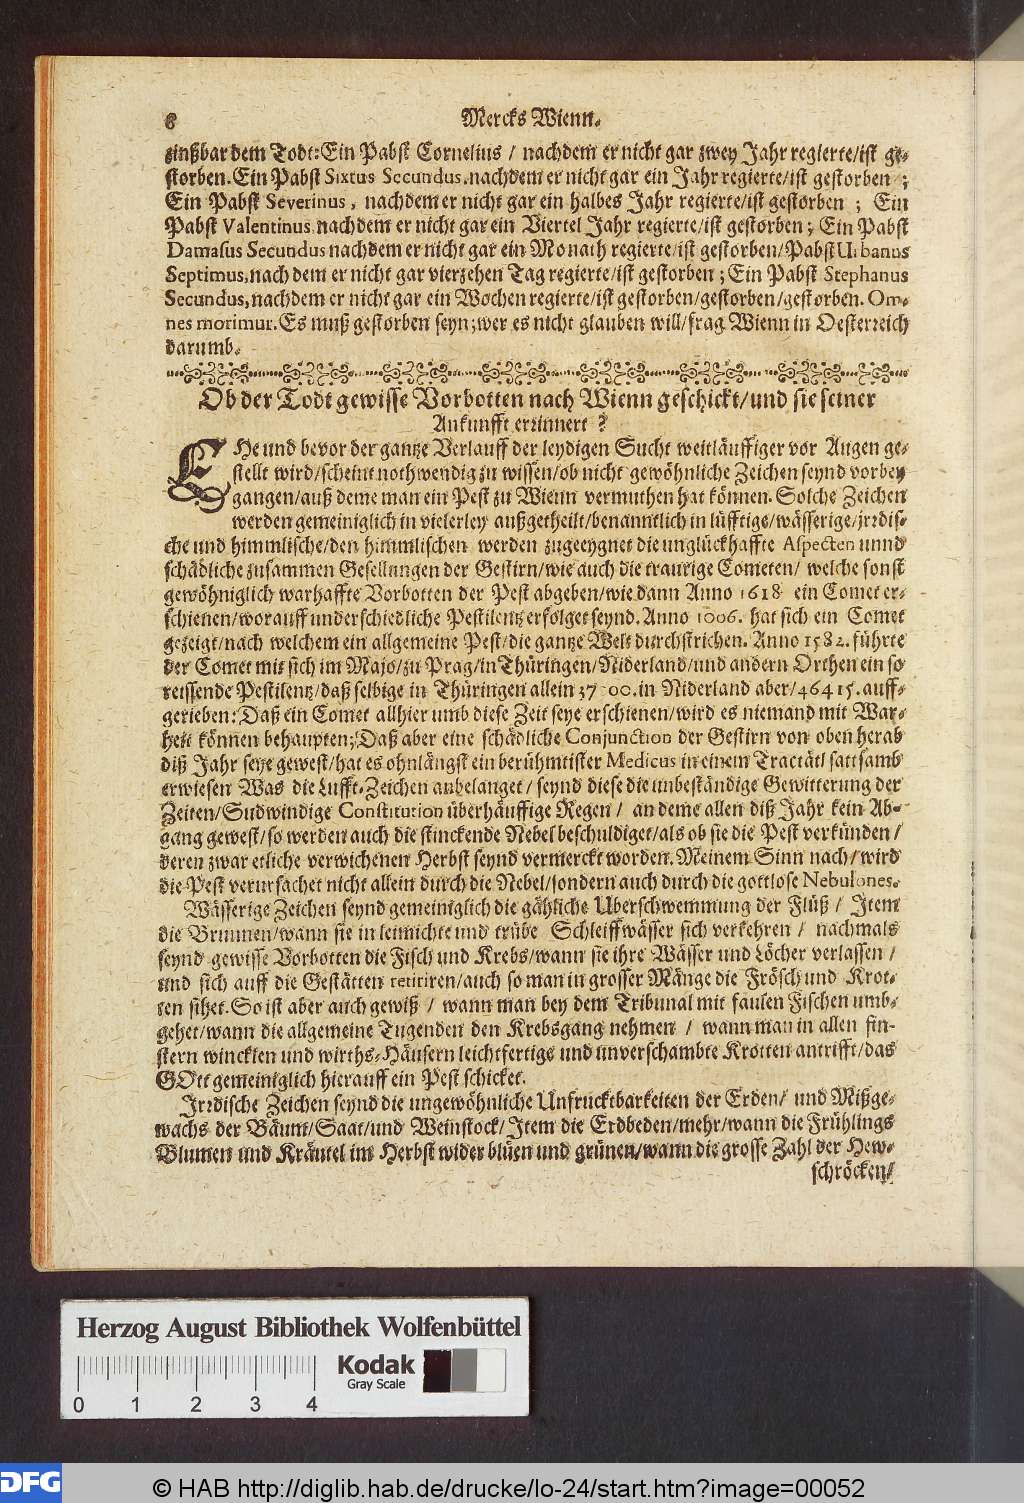 8 Mercks Wienn.
zinßbar dem Todt: Ein Pabst Cornelius / nachdem er nicht gar zwey Jahr regierte/ist ge-
storben. Ein Pabst Sixtus Secundus, nachdem er nicht gar ein Jahr regierte/ist gestorben ;
Ein Pabst Severinus, nachdem er nicht gar ein halbes Jahr regierte/ist gestorben ; Ein
Pabst Valentinus nachdem er nicht gar ein Viertel Jahr regierte/ist gestorben; Ein Pabst
Damasus Secundus nachdem er nicht gar ein Monath regierte/ist gestorben/Pabst Urbanus
Septimus, nach dem er nicht gar vierzehen Tag regierte/ist gestorben ; Ein Pabst Stephanus
Secundus, nachdem er nicht gar ein Wochen regierte/ist gestorben/gestorben/gestorben. Om-
nes morimur. Es muß gestorben seyn; wer es nicht glauben will/frag Wienn in Oesterreich
darumb.
Ob der Todt gewisse Vorbotten nach Wienn geschickt/und sie seiner
Ankunfft errinnert ?
EHe und bevor der gantze Verlauff der leydigen Sucht weitläuffiger vor Augen ge-
stellt wird/scheint nothwendig zu wissen/ob nicht gewöhnliche Zeichen seynd vorbey
gangen/auß deme man ein Pest zu Wienn vermuthen hat können. Solche Zeichen
werden gemeiniglich in vielerley außgetheilt/benanntlich in lüfftige/wässerige/jrrdis-
che und himmlische/den himmlischen werden zugeeygnet die unglückhaffte Aspecten unnd
schädliche zusammen Gesellungen der Gestirn/wie auch die traurige Cometen/ welche sonst
gewöhniglich warhaffte Vorbotten der Pest abgeben/wie dann Anno 1618 ein Comet er-
schienen/worauff underschiedliche Pestilentz erfolget seynd. Anno 1006. hat sich ein Comet
gezeigt/nach welchem ein allgemeine Pest/die gantze Welt durchstrichen. Anno 1582. führte
der Comet mit sich im Majo/zu Prag/in Thüringen/Niderland/und andern Orthen ein so
reissende Pestilentz/daß selbige in Thüringen allein 37 00. in Niderland aber/46415. auff-
gerieben: Daß ein Comet allhier umb diese Zeit seye erschienen/wird es niemand mit War-
heit können behaupten; Daß aber eine schädliche Conjunction der Gestirn von oben herab
diß Jahr seye gewest/hat es ohnlängst ein berühmtister Medicus in einem Tractätl sattsamb
erwiesen Was die Lufft-Zeichen anbelanget/ seynd diese die unbeständige Gewitterung der
Zeiten/Sudwindige Constitution überhäuffige Regen / an deme allen diß Jahr kein Ab-
gang gewest/so werden auch die stinckende Nebel beschuldiget/als ob sie die Pest verkünden /
deren zwar etliche verwichenen Herbst seynd vermerckt worden. Meinem Sinn nach/ wird
die Pest verursachet nicht allein durch die Nebel/sondern auch durch die gottlose Nebulones.
Wässerige Zeichen seynd gemeiniglich die gähliche Uberschwemmung der Flüß / Item
die Brunnen/wann sie in leimichte und trübe Schleiffwässer sich verkehren / nachmals
seynd gewisse Vorbotten die Fisch und Krebs/wann sie ihre Wässer und Löcher verlassen /
und sich auff die Gestätten retiriren/auch so man in grosser Mänge die Frösch und Krot-
ten sihet. So ist aber auch gewiß / wann man bey dem Tribunal mit faulen Fischen umb-
gehet/wann die allgemeine Tugenden den Krebsgang nehmen / wann man in allen fin-
stern wincklen und wirths-Häusern leichtfertige und unverschambte Krotten antrifft/das
GOtt gemeiniglich hierauff ein Pest schicket.
Irrdische Zeichen seynd die ungewöhnliche Unfrucktbarkeiten der Erden/ und Mißge-
wachs der Bäum/Saat/und Weinstock/Item die Erdbeden/mehr/wann die Frühlings
Blumen und Kräutel im Herbst wider blüen und grünen/wann die grosse Zahl der Hew-
schröcken/
Herzog August Bibliothek Wolfenbüttel
Kodak
Gray Scale
0 1 2 3 4
DFG © HAB http://diglib.hab.de/drucke/lo-24/start.htm?image=00052